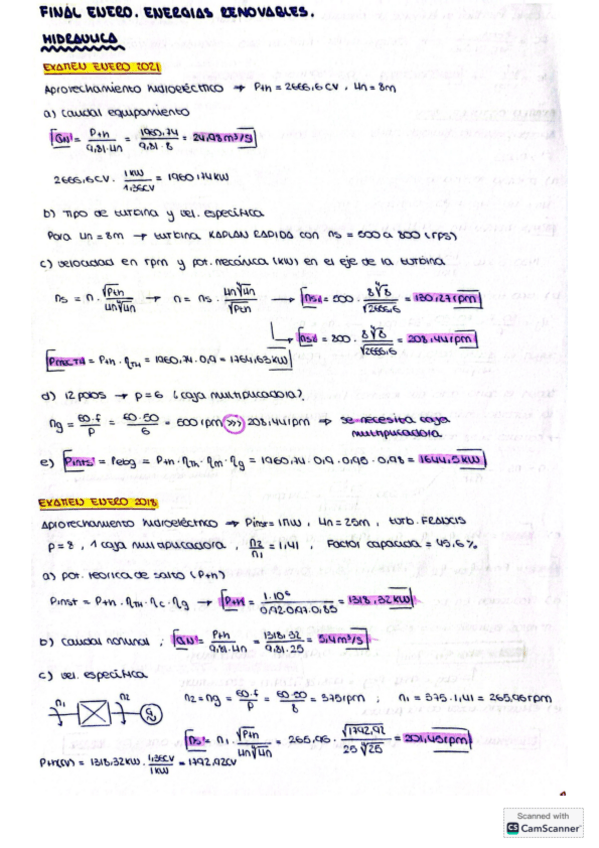 FINAL ENERO. ENERGIAS RENOVABLES.
HIDRAULICA
EXAMEN ENERO 2021
Aprovechamiento hidroeléctrico → Pth = 2666,6 CV , Hn = 8m
a) caudal equipamiento
QN = Pth / 9,81·Hn = 1960,74 / 9,81·8 = 24,98 m³/s
2666,6CV · 1KW / 1,36CV = 1960,74 KW
b) Tipo de turbina y vel. específica
Para Hn = 8m → turbina KAPLAN RAPIDA con ns = 500 a 800 (rps)
c) velocidad en rpm y pot. mecánica (KW) en el eje de la turbina
ns = n · √Pth / Hn ∜Hn → n = ns · Hn ∜Hn / √Pth → ns1 = 500 · 8 ∜8 / √2666,6 = 130,27 rpm
ns2 = 800 · 8 ∜8 / √2666,6 = 208,44 rpm
Pmec,TH = Pth · ηTH = 1960,74 · 0,9 = 1764,63 KW
d) 12 polos → p = 6 ¿caja multiplicadora?
ng = 60·f / p = 60·50 / 6 = 500 rpm >>> 208,44 rpm → se necesita caja
multiplicadora
e) Pinst = Pebg = Pth · ηTH · ηm · ηg = 1960,74 · 0,9 · 0,95 · 0,98 = 1644,5 KW
EXAMEN ENERO 2018
Aprovechamiento hidroeléctrico → Pinst = 1MW , Hn = 25m , turb. FRANCIS
p = 8 , 1 caja multiplicadora , n2/n1 = 1,41 , Factor capacidad = 45,6%
a) pot. teórica de salto (Pth)
Pinst = Pth · ηTH · ηc · ηg → Pth = 1·10⁶ / 0,92·0,97·0,85 = 1318,32 KW
b) caudal nominal ; QN = Pth / 9,81·Hn = 1318,32 / 9,81·25 = 5,4 m³/s
c) vel. específica
n1 n2 g
n2 = ng = 60·f / p = 60·50 / 8 = 375 rpm ; n1 = 375 · 1,41 = 265,95 rpm
ns = n1 · √Pth / Hn ∜Hn = 265,95 · √1792,92 / 25 ∜25 = 201,45 rpm
Pth(CV) = 1318,32 KW · 1,36CV / 1KW = 1792,92 CV
Scanned with
CS CamScanner